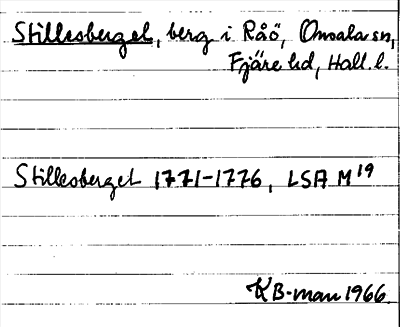 Stillesberget, berg i Råö, Onsala sn,
Fjäre hd, Hall. l.
Stillesberget 1771-1776, LSA M 19
KB-man 1966.